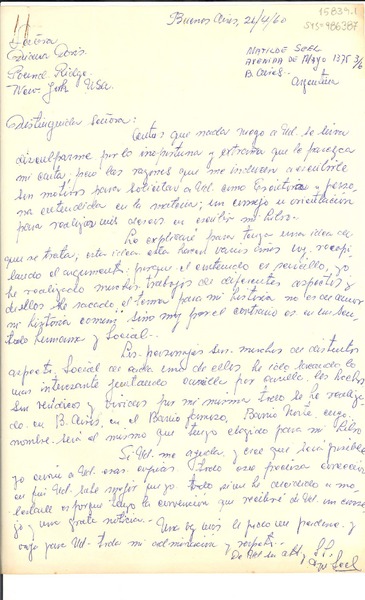 15839.1
SYS=986387
Buenos Aires, 21/4/60
Señora
Doris
Pound Ridge
New York USA.
MATILDE SOEL
AVENIDA DE MAYO 1375 3/6
B. Aires.
Argentina
Distinguida Señora:
Antes que nada ruego a Ud. se sirva
disculparme por lo inoportuna y extraña que le parezca
mi carta; pero las razones que me inducen a escribirle
son motivos para solicitar a Ud. como Escritora y perso-
na entendida en la materia; un consejo u orientación
para realizar mis deseos en escribir mi Libro.
Le explicaré para tenga una idea de
que se trata; esta idea data hacen varios años voy recopi-
lando el argumento; porque el contenido es sencillo, yo
he realizado muchos trabajos de diferentes aspectos y
de ellos he sacado el tema para mi historia no es de amor
ni historia común; sino muy por el contrario es en un sen-
tido humano y Social.
Los personajes son muchos de distintos
aspecto Social de cada uno de ellos he ido sacando lo
mas interesante juntando cuartilla por cuartilla. los hechos
son verídicos y vividos por mi misma todo se ha realiza-
do en B. Aires, en el Barrio famoso, Barrio Norte cuyo
nombre será el mismo que tengo elegido para mi Libro
Si Ud. me ayuda, y cree que será posible
yo envío a Ud. esas copias todo eso precisa corrección
en fin Ud. sabe mejor que yo todo si me he decidido a mo-
lestarle es porque tengo la convención que recibiré de Ud. un conse-
jo y una grata noticia. Una vez más le pido me perdone y
vaya para Ud. toda mi admiración y respeto.
De Ud. su att. y SS.
Soel